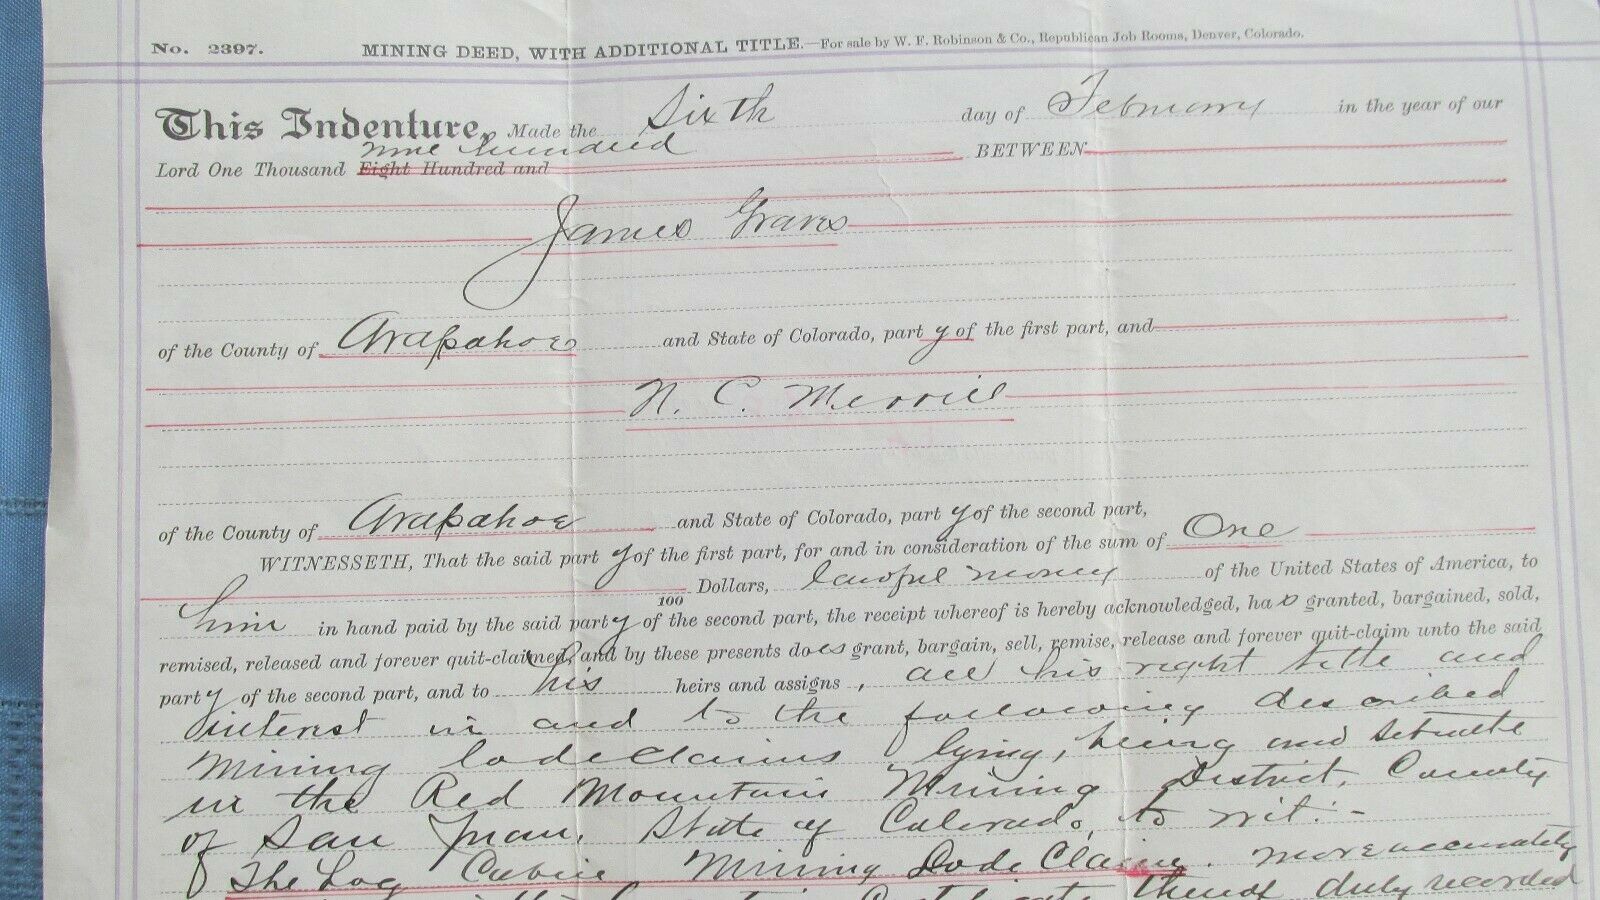 No. 2397. MINING DEED, WITH ADDITIONAL TITLE.—For sale by W. F. Robinson & Co., Republican Job Rooms, Denver, Colorado.
This Indenture, Made the Sixth day of February in the year of our
nine hundred
Lord One Thousand Eight Hundred and BETWEEN
James Graves
of the County of Arapahoe and State of Colorado, party of the first part, and
N. C. Merrill
of the County of Arapahoe and State of Colorado, party of the second part,
WITNESSETH, That the said party of the first part, for and in consideration of the sum of One
100 Dollars, lawful money of the United States of America, to
him in hand paid by the said party of the second part, the receipt whereof is hereby acknowledged, has granted, bargained, sold,
remised, released and forever quit-claimed, and by these presents does grant, bargain, sell, remise, release and forever quit-claim unto the said
party of the second part, and to his heirs and assigns, all his right title and
interest in and to the following described
Mining lode claims lying, being and situate
in the Red Mountain Mining District, County
of San Juan, State of Colorado, to wit:-
The Log Cabin Mining Lode Claim. more accurately
thereof duly recorded